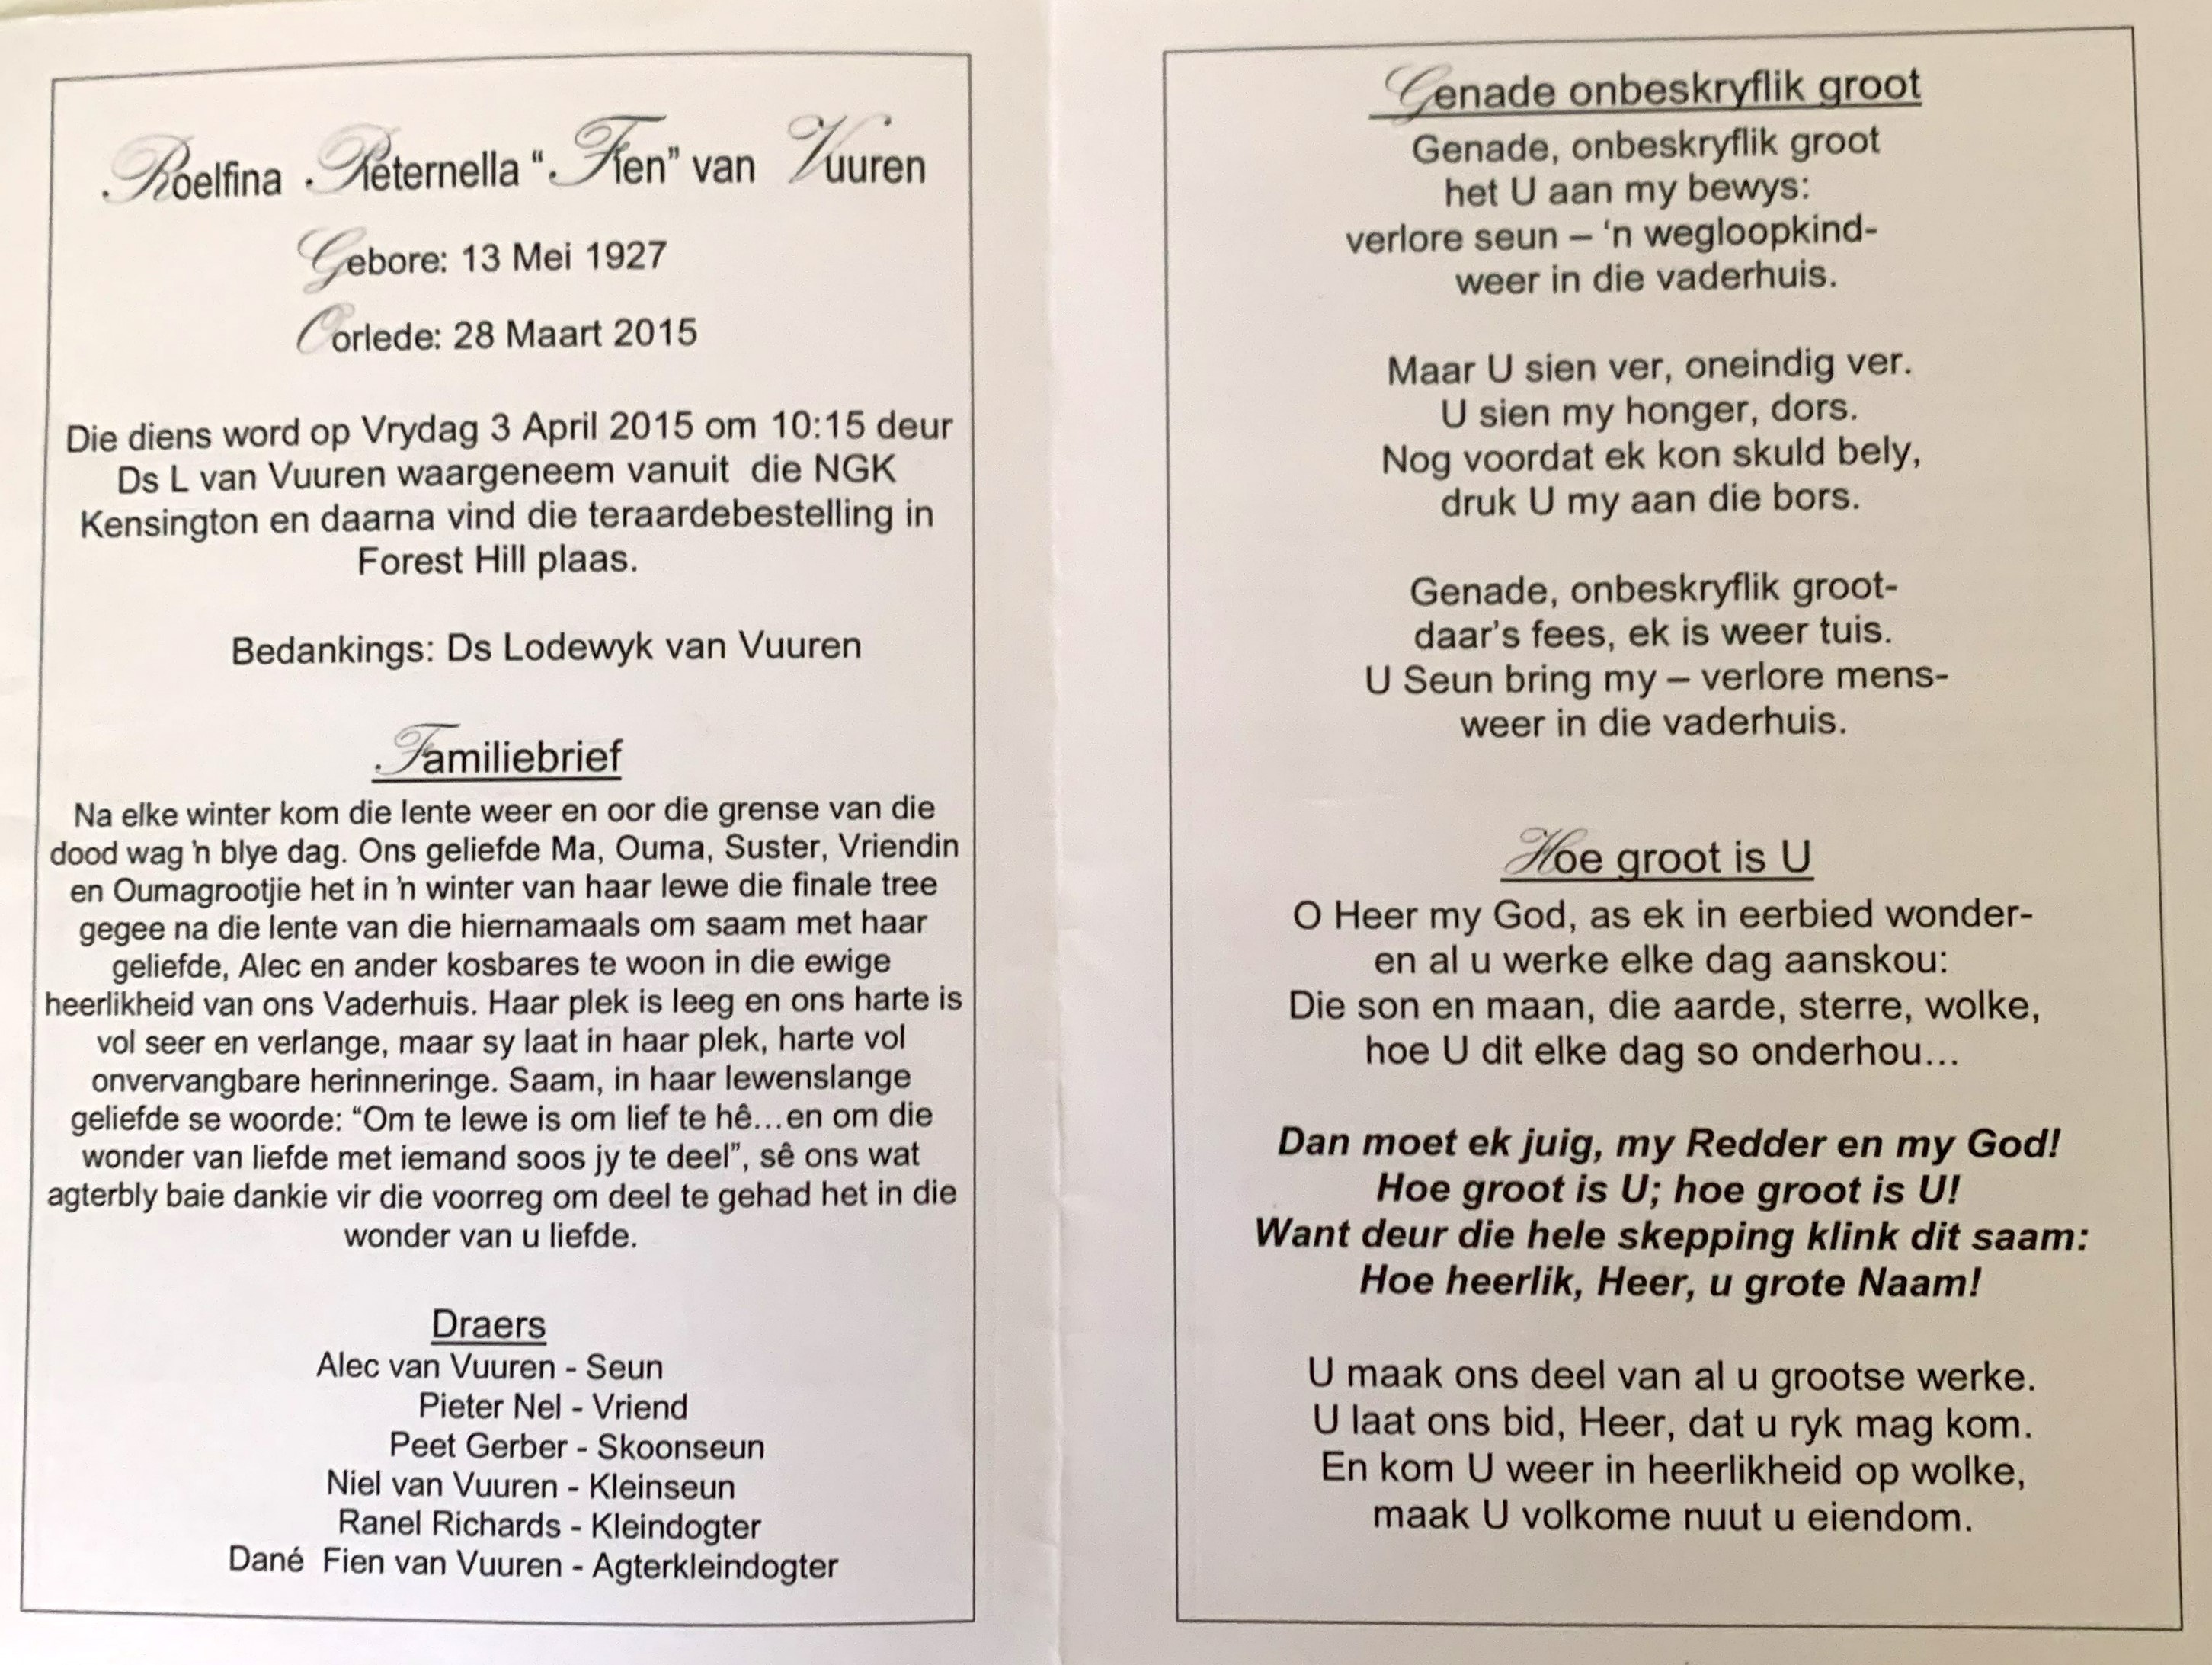 Roelfina Pieternella “Fien” van Vuuren
Gebore: 13 Mei 1927
Oorlede: 28 Maart 2015
Die diens word op Vrydag 3 April 2015 om 10:15 deur
Ds L van Vuuren waargeneem vanuit die NGK
Kensington en daarna vind die teraardebestelling in
Forest Hill plaas.
Bedankings: Ds Lodewyk van Vuuren
Familiebrief
Na elke winter kom die lente weer en oor die grense van die
dood wag ’n blye dag. Ons geliefde Ma, Ouma, Suster, Vriendin
en Oumagrootjie het in ’n winter van haar lewe die finale tree
gegee na die lente van die hiernamaals om saam met haar
geliefde, Alec en ander kosbares te woon in die ewige
heerlikheid van ons Vaderhuis. Haar plek is leeg en ons harte is
vol seer en verlange, maar sy laat in haar plek, harte vol
onvervangbare herinneringe. Saam, in haar lewenslange
geliefde se woorde: “Om te lewe is om lief te hê…en om die
wonder van liefde met iemand soos jy te deel”, sê ons wat
agterbly baie dankie vir die voorreg om deel te gehad het in die
wonder van u liefde.
Draers
Alec van Vuuren - Seun
Pieter Nel - Vriend
Peet Gerber - Skoonseun
Niel van Vuuren - Kleinseun
Ranel Richards - Kleindogter
Dané Fien van Vuuren - Agterkleindogter
Genade onbeskryflik groot
Genade, onbeskryflik groot
het U aan my bewys:
verlore seun – ‘n wegloopkind-
weer in die vaderhuis.
Maar U sien ver, oneindig ver.
U sien my honger, dors.
Nog voordat ek kon skuld bely,
druk U my aan die bors.
Genade, onbeskryflik groot-
daar’s fees, ek is weer tuis.
U Seun bring my – verlore mens-
weer in die vaderhuis.
Hoe groot is U
O Heer my God, as ek in eerbied wonder-
en al u werke elke dag aanskou:
Die son en maan, die aarde, sterre, wolke,
hoe U dit elke dag so onderhou…
Dan moet ek juig, my Redder en my God!
Hoe groot is U; hoe groot is U!
Want deur die hele skepping klink dit saam:
Hoe heerlik, Heer, u grote Naam!
U maak ons deel van al u grootse werke.
U laat ons bid, Heer, dat u ryk mag kom.
En kom U weer in heerlikheid op wolke,
maak U volkome nuut u eiendom.